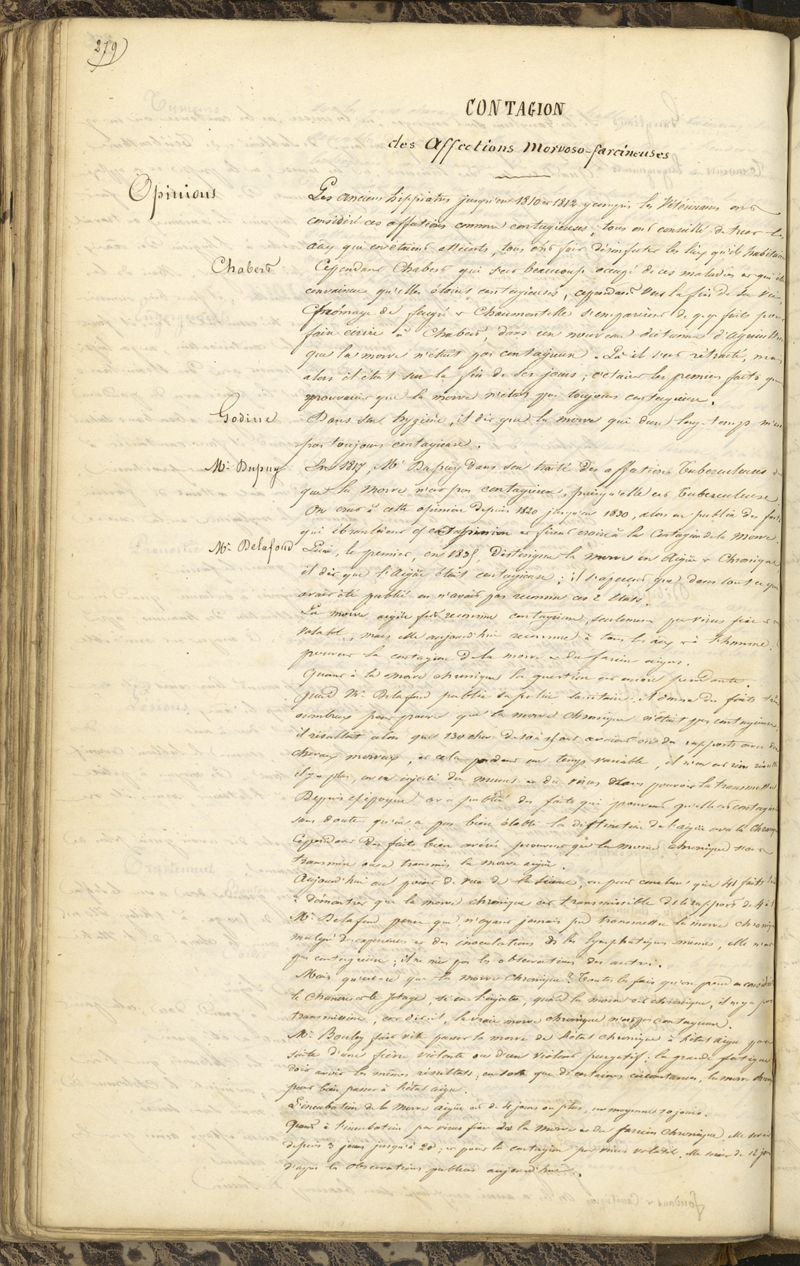 279
CONTAGION
des Affections Morvoso-farcineuses
Opinions
Les anciens hippiatres jusqu'en 1810 et 1812 y compris les Vétérinaires ont
considéré ces affections comme contagieuses, tous ont conseillé de tuer les
qui en étaient atteints, tous ont fait désinfecter les lieux qu'ils habitaient
Chabert
Cependant Chabert qui s'est beaucoup occupé de ces maladies et qui était
convaincu qu'elles étaient contagieuses, cependant vers la fin de sa vie
de et Chaumontelle s'emparèrent de q.q. faits pour
faire écrire à Chabert, dans un nouveau d'Agriculture
que la morve n'était pas contagieuse. Là il s'est rétracté, mais
alors il était sur la fin de ses jours; c'étaient les premiers faits qui
prouvaient que la morve n'était pas toujours contagieuse.
Godine
Dans son hygiène, il dit que la morve qui dure long-temps n'est
pas toujours contagieuse.
Mr. Dupuy
En 1817, Mr. Dupuy dans son traité des affections tuberculeuses dit
que la morve n'est pas contagieuse, puisqu'elle est tuberculeuse.
On crut à cette opinion depuis 1820 jusqu'en 1830, alors on publia des faits
qui ébranlèrent cette opinion et firent croire à la contagion de la morve.
Mr. Delafond
Lui, le premier, en 1835, distingua la morve en Aigüe et Chronique
il dit que l'Aigüe était contagieuse; il s'aperçut que dans tout ce qui
avait été publié on n'avait pas reconnu ces 2 états.
La morve aigüe fut reconnue contagieuse, seulement par virus fixe et
volatil, mais elle aujourd'hui reconnue à tous les et à l'homme.
prouver la contagion de la morve et du farcin aigus.
Quant à la morve chronique la question est encore pendante.
Quand Mr. Delafond publia sa police sanitaire, il donna des faits très
nombreux pour prouver que la morve chronique n'était pas contagieuse
il résultait alors que 138 avaient eu des rapports avec des
chevaux morveux, et cela pendant un temps variable, il n'en est rien résulté
il y a plus, on a injecté du mucus et du virus sans pouvoir la transmettre
Depuis cet époque on a publié des faits qui prouvent qu'elle est contagieuse
sans doute qu'on a pas bien établi la distinction de l'aigüe avec la chronique
Cependant des faits bien avérés prouvent que la morve chronique
transmise ou a transmis la morve aigüe.
Aujourd'hui au point de vue de la science, on peut conclure que 41 faits
à démontrer que la morve chronique est transmissible
Mr. Delafond pense que n'ayant jamais pu transmettre la morve chronique
malgré des expériences et des inoculations de les lymphatiques mêmes, elle n'est
pas contagieuse; il ne nie pas les observations des autres.
Mais qu'est-ce que la morve chronique? Toutes les fois qu'on prend en considération
le chancre et le jetage, quand la morve est chronique, il n'y a pas
transmission, car dit-il, la vraie morve chronique n'est pas contagieuse.
Mr. Bouley fait vite passer la morve de l'état chronique à l'état aigu par
suite d'une fièvre violente ou d'un violent purgatif; la grande fatigue
doit avoir les mêmes résultats; en sorte que de certaines circonstances, la morve chron.
peut bien passer à l'état aigu.
L'incubation de la Morve aigüe est de 4 jours ou plus, en moyenne 10 jours.
Quant à l'incubation par virus fixe de la morve et du farcin chronique, elle serait
depuis 3 jours jusqu'à 20; et pour la contagion par virus volatil, elle serait de 12 jours
d'après les observations publiées aujourd'hui.